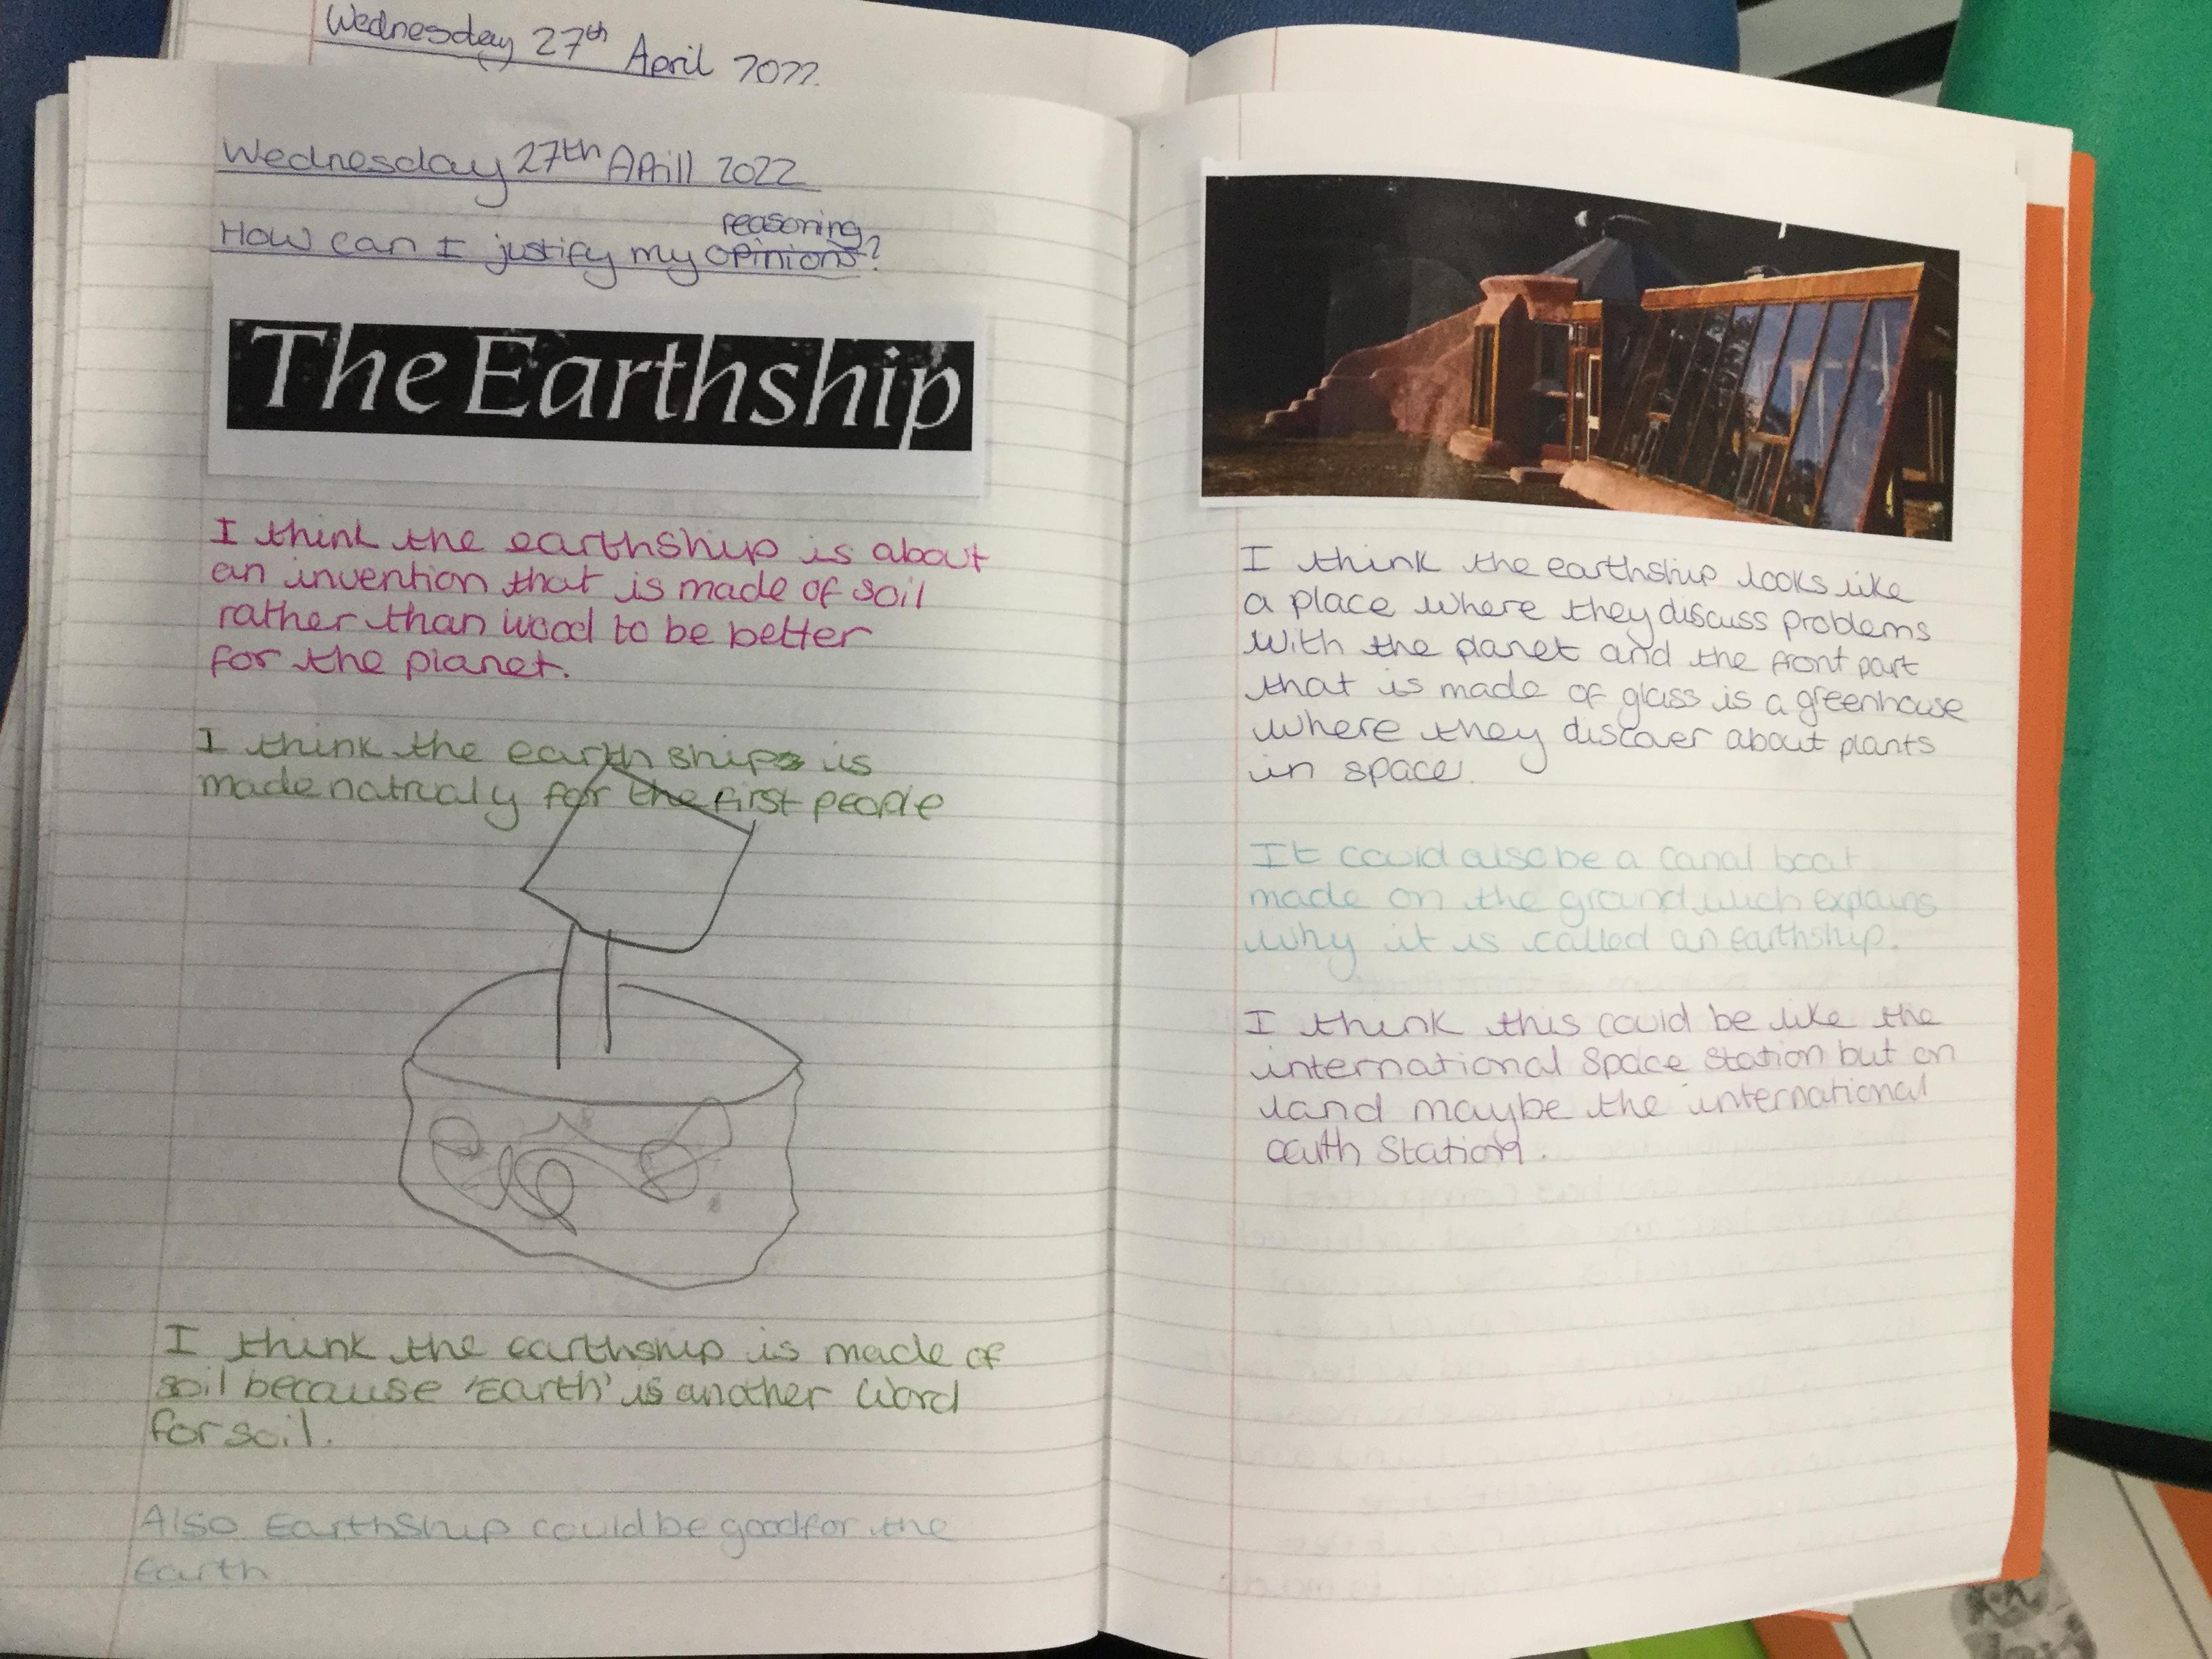 Wednesday 27th April 2022
Wednesday 27th Aprill 2022
reasoning
How can I justify my opinions?
The Earthship
I think the earthship is about
an invention that is made of soil
rather than wood to be better
for the planet.
I think the earth ship is
made natrualy for the first people
I think the earthship is made of
soil because 'Earth' is another word
for soil.
Also EarthShip could be good for the
Earth
I think the earthship looks like
a place where they discuss problems
with the planet and the front part
that is made of glass is a greenhouse
where they discover about plants
in space.
It could also be a canal boat
made on the ground wich explains
why it is called an earthship.
I think this could be like the
international Space Station but on
land maybe the international
earth Station.